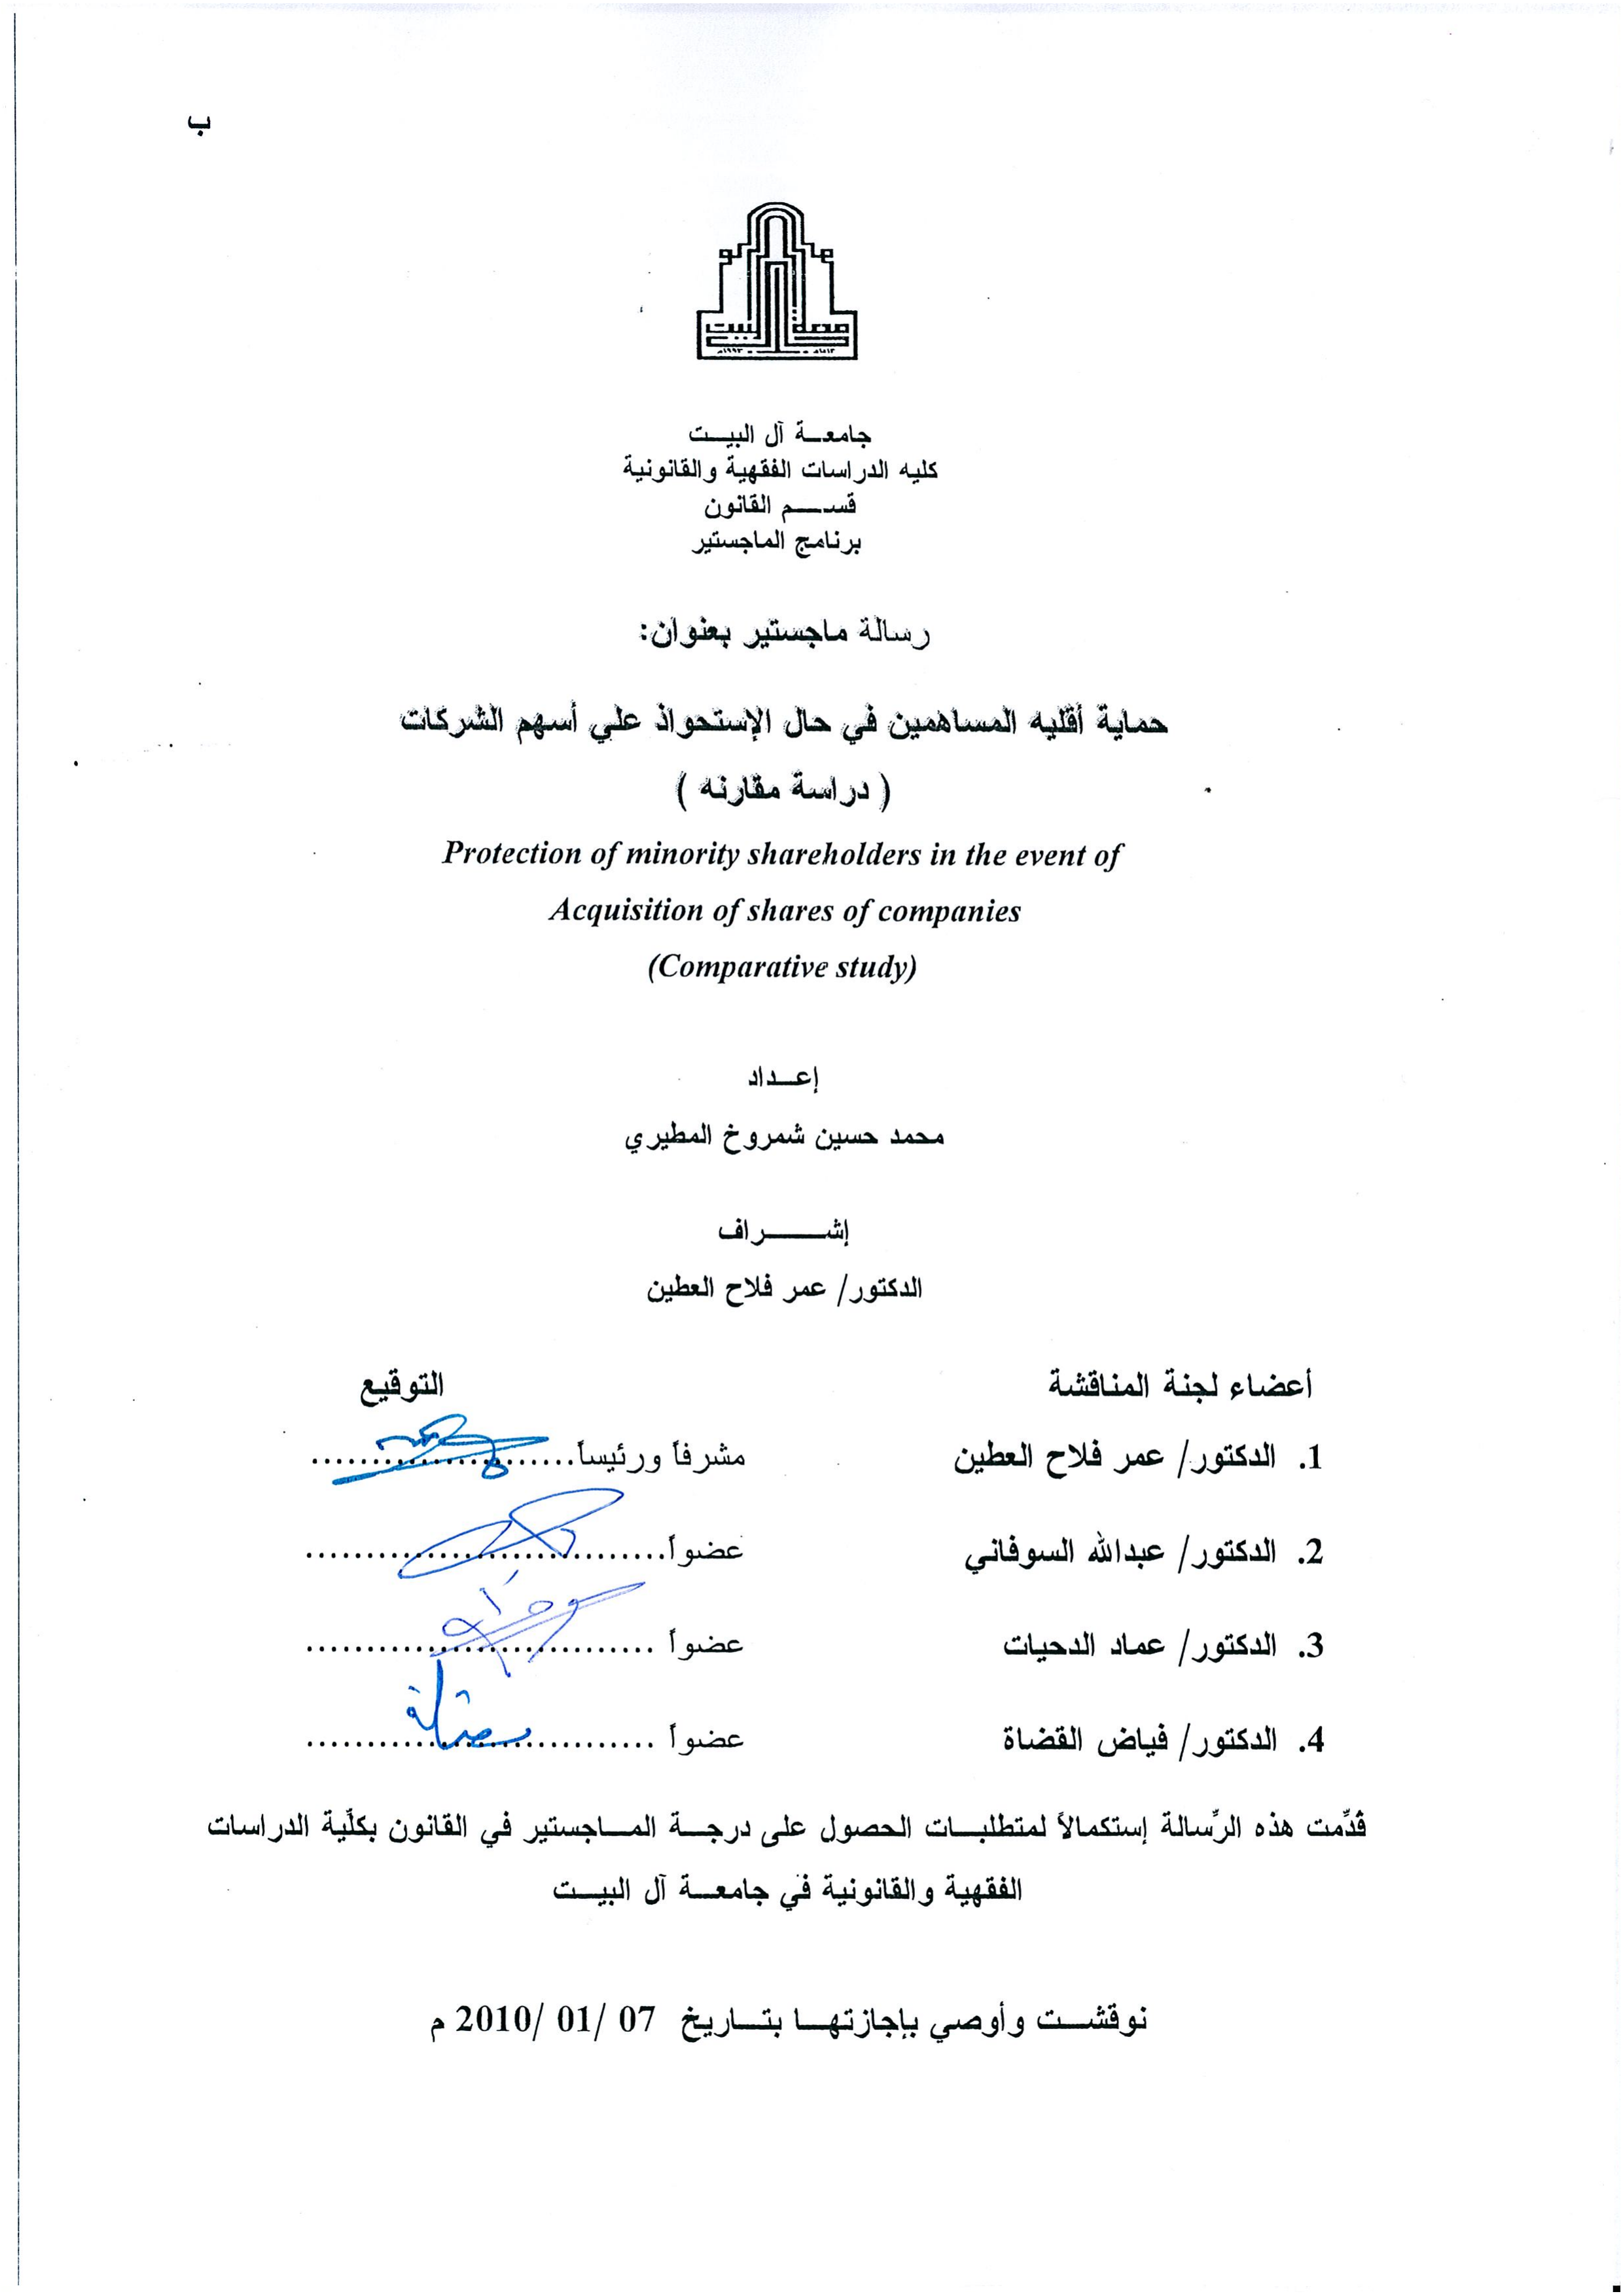 ب
جامعـــة آل البيـــت
كليه الدراسات الفقهية والقانونية
قســـم القانون
برنامج الماجستير
رسالة ماجستير بعنوان:
حماية أقليه المساهمين في حال الإستحواذ علي أسهم الشركات
( دراسة مقارنه )
Protection of minority shareholders in the event of
Acquisition of shares of companies
(Comparative study)
إعـــداد
محمد حسين شمروخ المطيري
إشـــــراف
الدكتور/ عمر فلاح العطين
أعضاء لجنة المناقشة التوقيع
1. الدكتور/ عمر فلاح العطين مشرفاً ورئيساً......................
2. الدكتور/ عبدالله السوفاني عضواً..............................
3. الدكتور/ عماد الدحيات عضواً .............................
4. الدكتور/ فياض القضاة عضواً .............................
قُدِّمت هذه الرِّسالة إستكمالاً لمتطلبـــات الحصول على درجـــة المـــاجستير في القانون بكلّية الدراسات
الفقهية والقانونية في جامعـــة آل البيـــت
نوقشـــت وأوصي بإجازتهـــا بتـــاريخ 07 /01 /2010 م